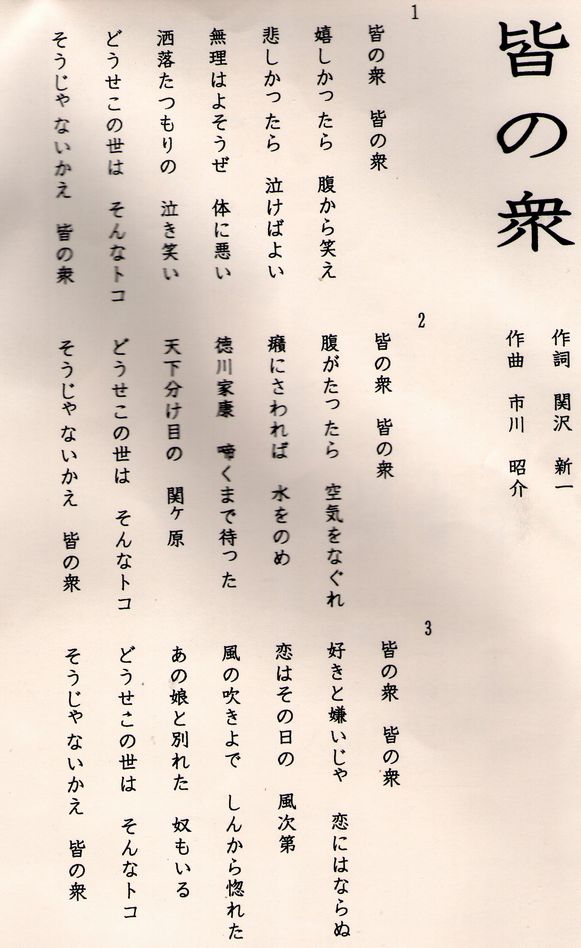 皆の衆
作詞 関沢 新一
作曲 市川 昭介
1
皆の衆 皆の衆
嬉しかったら 腹から笑え
悲しかったら 泣けばよい
無理はよそうぜ 体に悪い
洒落たつもりの 泣き笑い
どうせこの世は そんなトコ
そうじゃないかえ 皆の衆
2
皆の衆 皆の衆
腹がたったら 空気をなぐれ
癪にさわれば 水をのめ
徳川家康 啼くまで待った
天下分け目の 関ヶ原
どうせこの世は そんなトコ
そうじゃないかえ 皆の衆
3
皆の衆 皆の衆
好きと嫌いじゃ 恋にはならぬ
恋はその日の 風次第
風の吹きよで しんから惚れた
あの娘と別れた 奴もいる
どうせこの世は そんなトコ
そうじゃないかえ 皆の衆